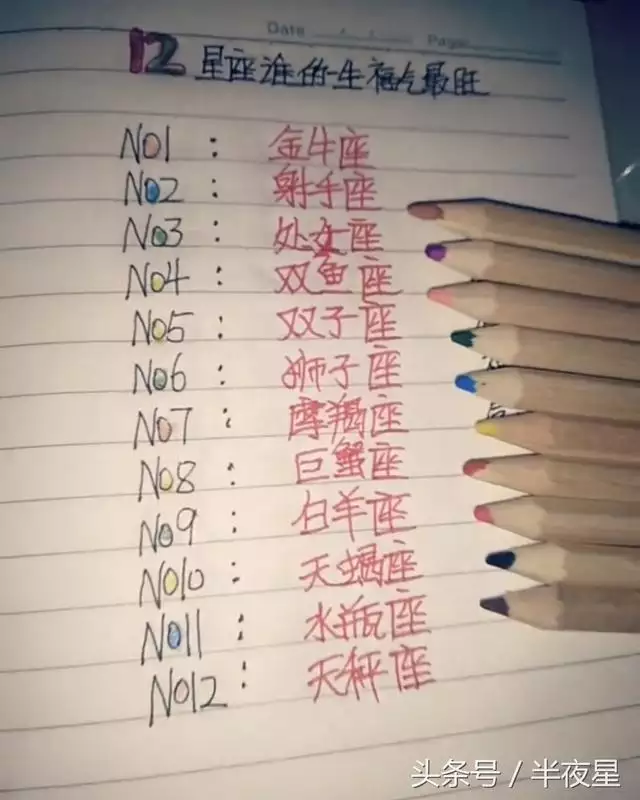 Date / / Page:
12星座谁的一生福气最旺
NO1 : 金牛座
NO2 : 射手座
NO3 : 处女座
NO4 : 双鱼座
NO5 : 双子座
NO6 : 狮子座
NO7 : 摩羯座
NO8 : 巨蟹座
NO9 : 白羊座
NO10 : 天蝎座
NO11 : 水瓶座
NO12 : 天秤座
头条号 / 半夜星